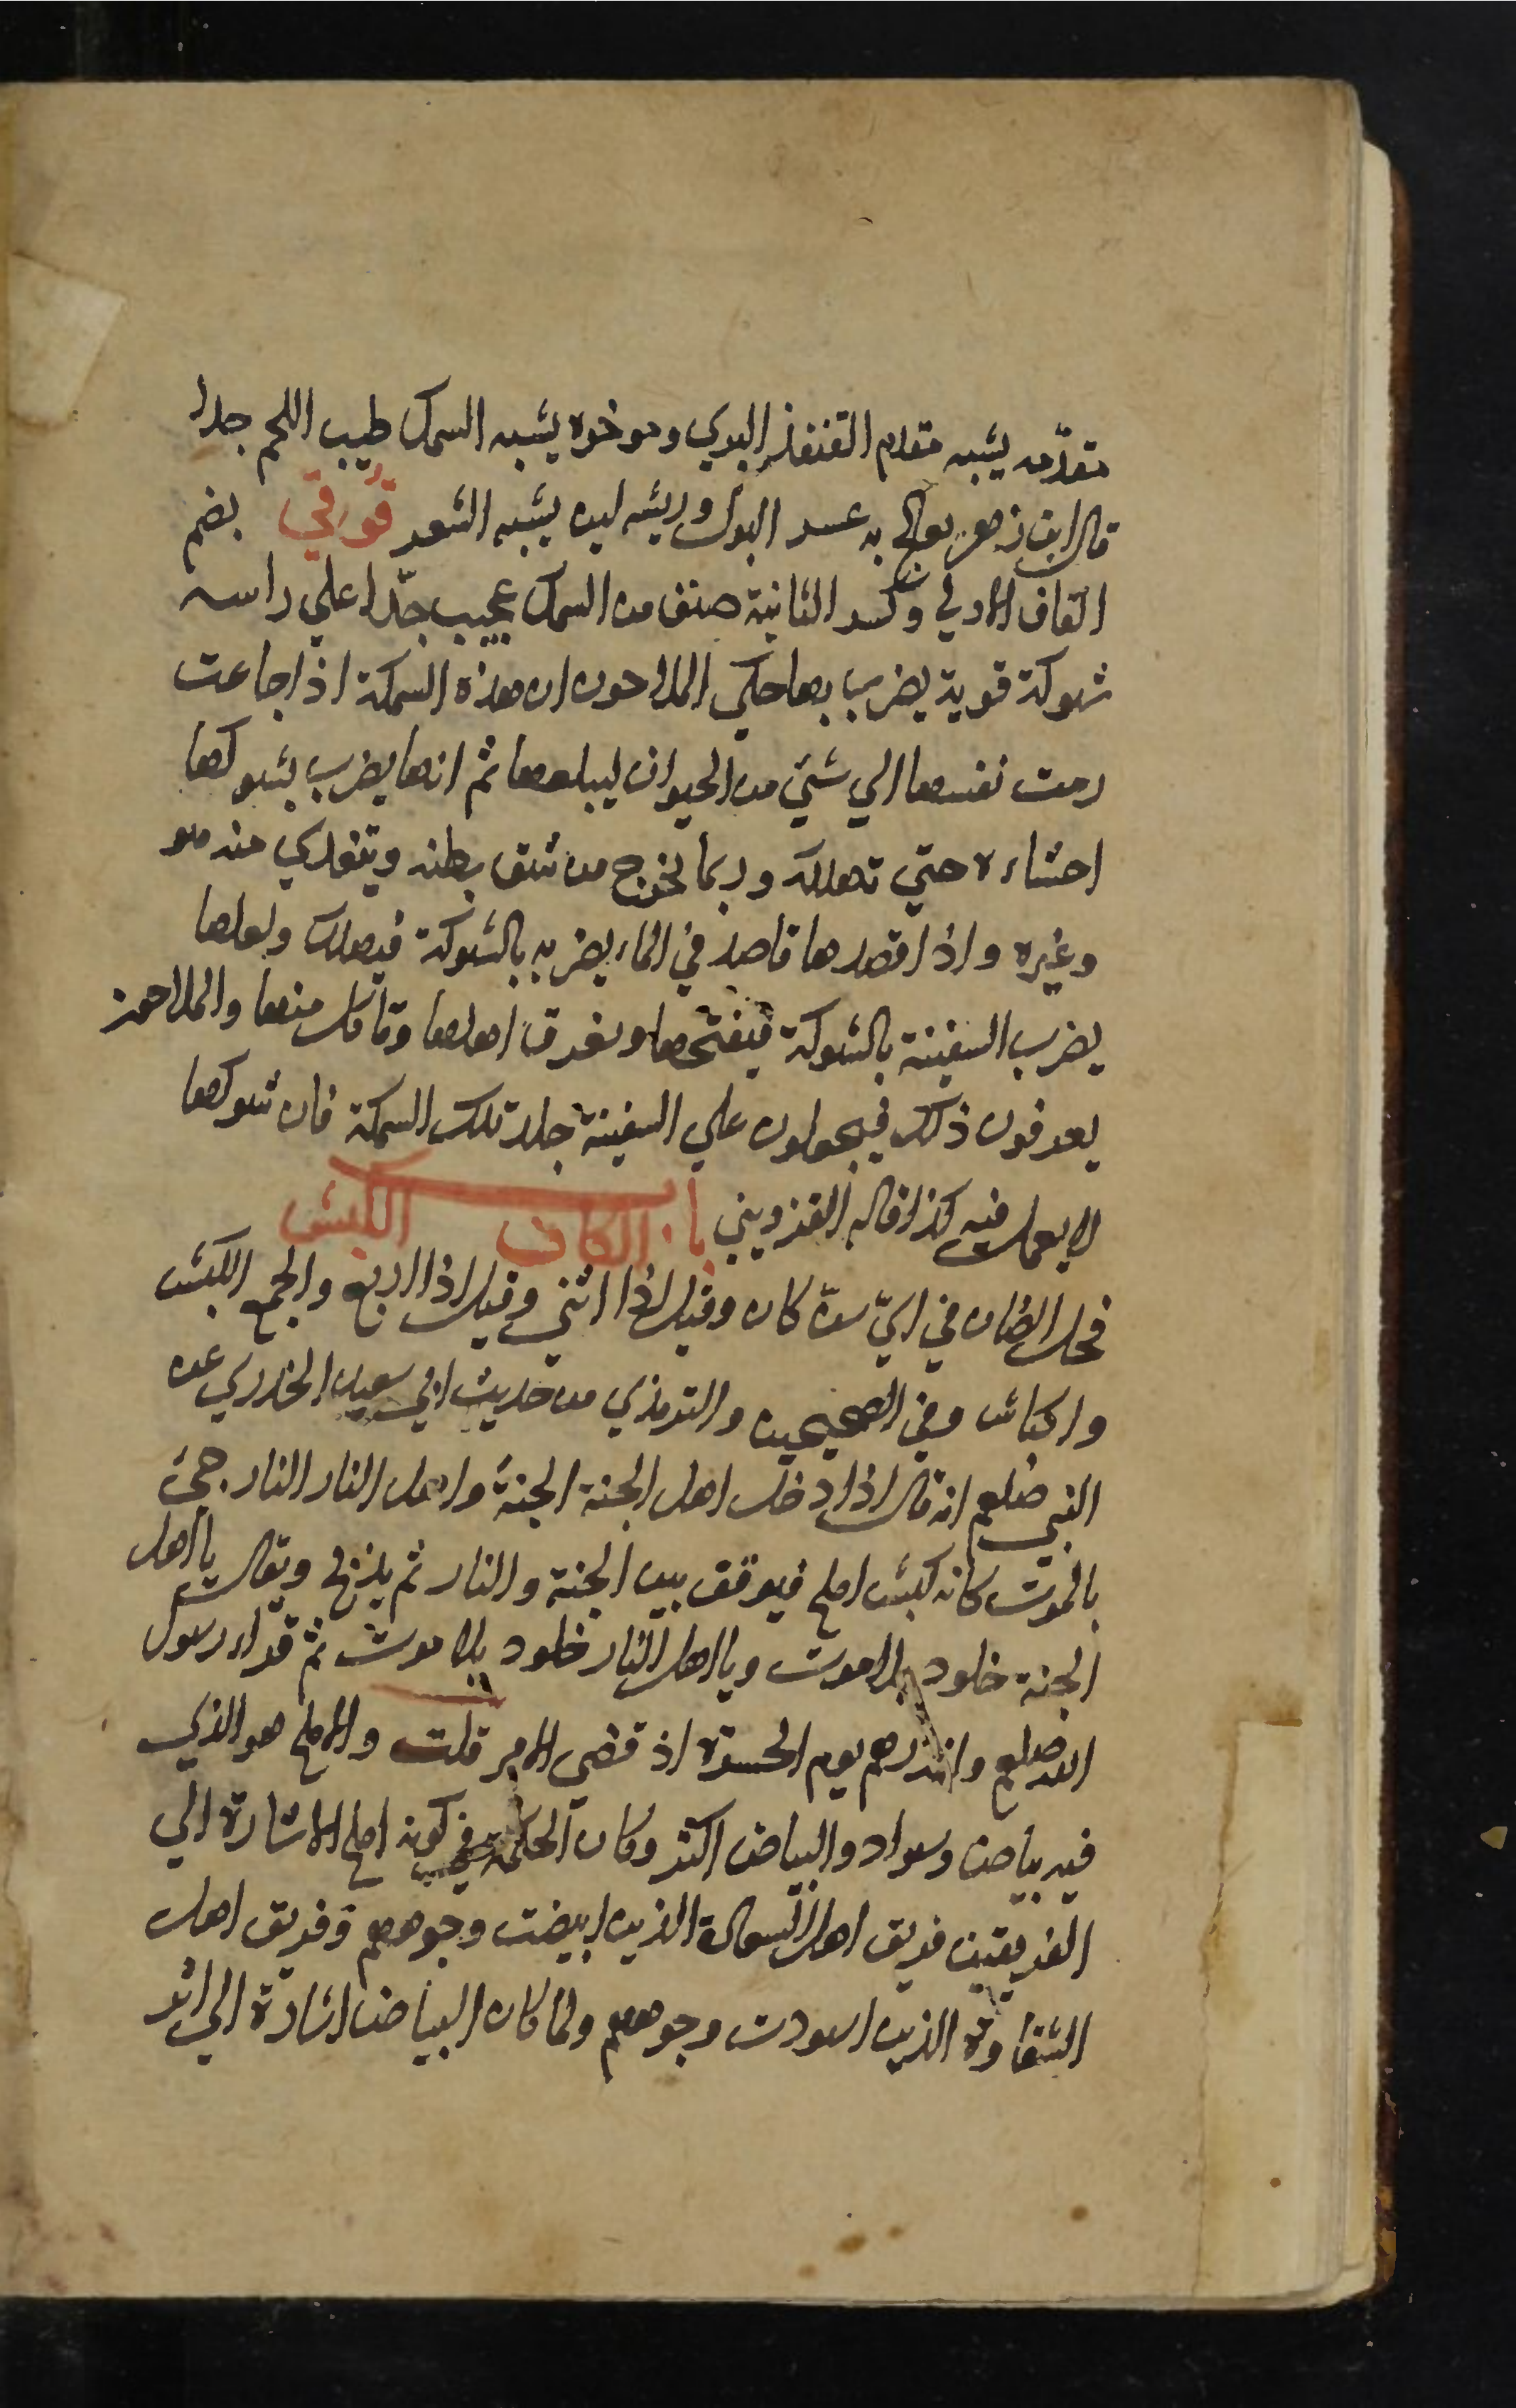 مقدّمه يشبه مقدم القنفذ البري وموخره يشبه السمك طيب اللحم جدا
قال ابن زهر يعالج به عسر البول وريشه لين يشبه الشعر قوقي بضم
القاف الاولي وكسر الثانية صنف من السمك عجيب جدّا علي راسه
شوكة قوية يضرب بها حكي الملاحون ان هذه السمكة اذا جاعت
رمت نفسها الي شئي من الحيوان ليبلعها ثم انها يضرب بشوكها
احشاءه حتي تهلكه وربما تخرج من شق بطنه ويتغدي منه هو
وغيره واذا قصدها قاصد في الماء يضربه بالشوكة فيهلك ولعلها
يضرب السفينة بالشوكة فيفتحها ويغرق اهلها وتاكل منها والملاحون
يعرفون ذلك فيجعلون علي السفينة جلد تلك السمكة فان شوكها
لا يعمل فيه كذا قاله القزويني باب الكاف الكبش
فحل الضان في ايّ سن كان وقيل اذا اثني وقيل اذا اربع والجمع الكبش
واكباش وفي الصحيحين والترمذي من حديث ابي سعيد الخدري عن
النبي صلعم انه قال اذا دخل اهل الجنة الجنة واهل النار النار جئ
بالموت كانه كبش املح فيوقف بين الجنة والنار ثم يذبح ويقال يا اهل
الجنة خلود بلا موت ويا اهل النار خلود بلا موت ثم قراء رسول
الله صلعم وانذرهم يوم الحسرة اذ قضي الامر قلت والاملح هو الذي
فيه بياض وسواد والبياض اكثر وكان الحكمة في كونه املح الاشارة الي
الفريقين فريق اهل السعادة الذين ابيضت وجوههم وفريق اهل
الشقاوة الذين اسودت وجوههم ولما كان البياض اشارة الي اثر